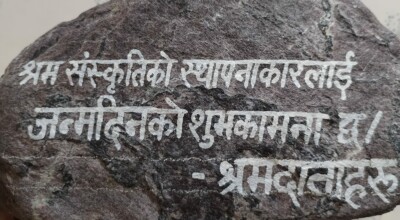 श्रम संस्कृतिको स्थापनाकारलाई
जन्मदिनको शुभकामना छ।
- श्रमदाताहरू